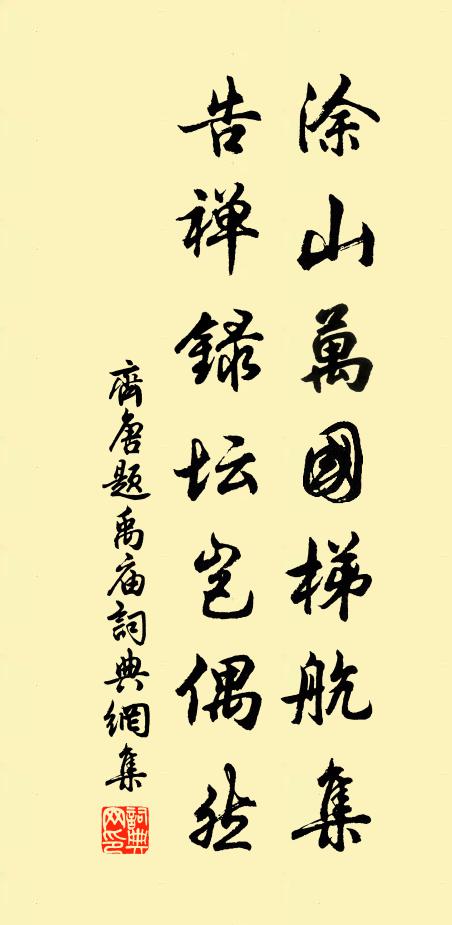 涂山萬國梯航集
告禅録坛岂偶然
齊唐题禹庙詞典網集
詞典网印